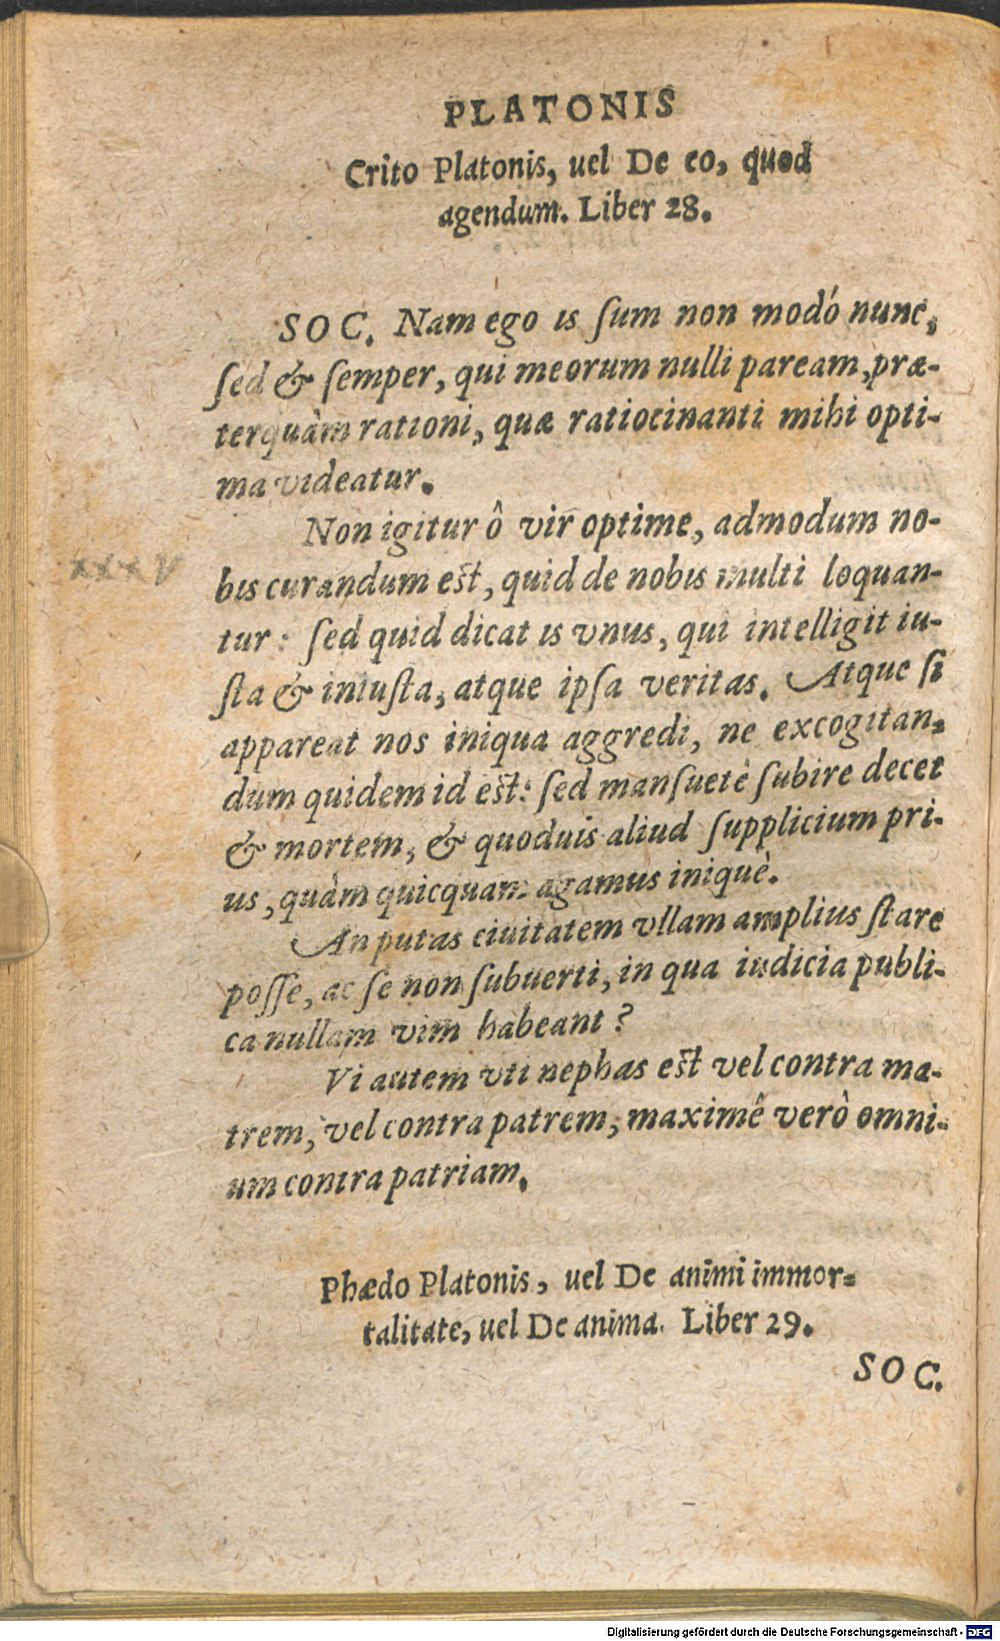 PLATONIS
Crito Platonis, uel De eo, quod
agendum. Liber 28.
SOC. Nam ego is ſum non modó nunc,
ſed & ſemper, qui meorum nulli paream, præ-
terquàm rationi, quæ ratiocinanti mihi opti-
ma videatur.
Non igitur ô vir optime, admodum no-
xxxv
bis curandum eſt, quid de nobis multi loquan-
tur: ſed quid dicat is vnus, qui intelligit iu-
ſta & iniuſta, atque ipſa veritas. Atque ſi
appareat nos iniqua aggredi, ne excogitan-
dum quidem id eſt: ſed manſuetê ſubire decet
& mortem, & quoduis aliud ſupplicium pri-
us, quàm quicquam agamus iniquè.
An putas ciuitatem vllam amplius ſtare
poſſe, ac ſe non ſubuerti, in qua iudicia publi-
ca nullam vim habeant?
Vi autem vti nephas eſt vel contra ma-
trem, vel contra patrem, maximê verò omni-
um contra patriam.
Phædo Platonis, uel De animi immor-
talitate, uel De anima. Liber 29.
SOC.
Digitalisierung gefördert durch die Deutsche Forschungsgemeinschaft - DFG